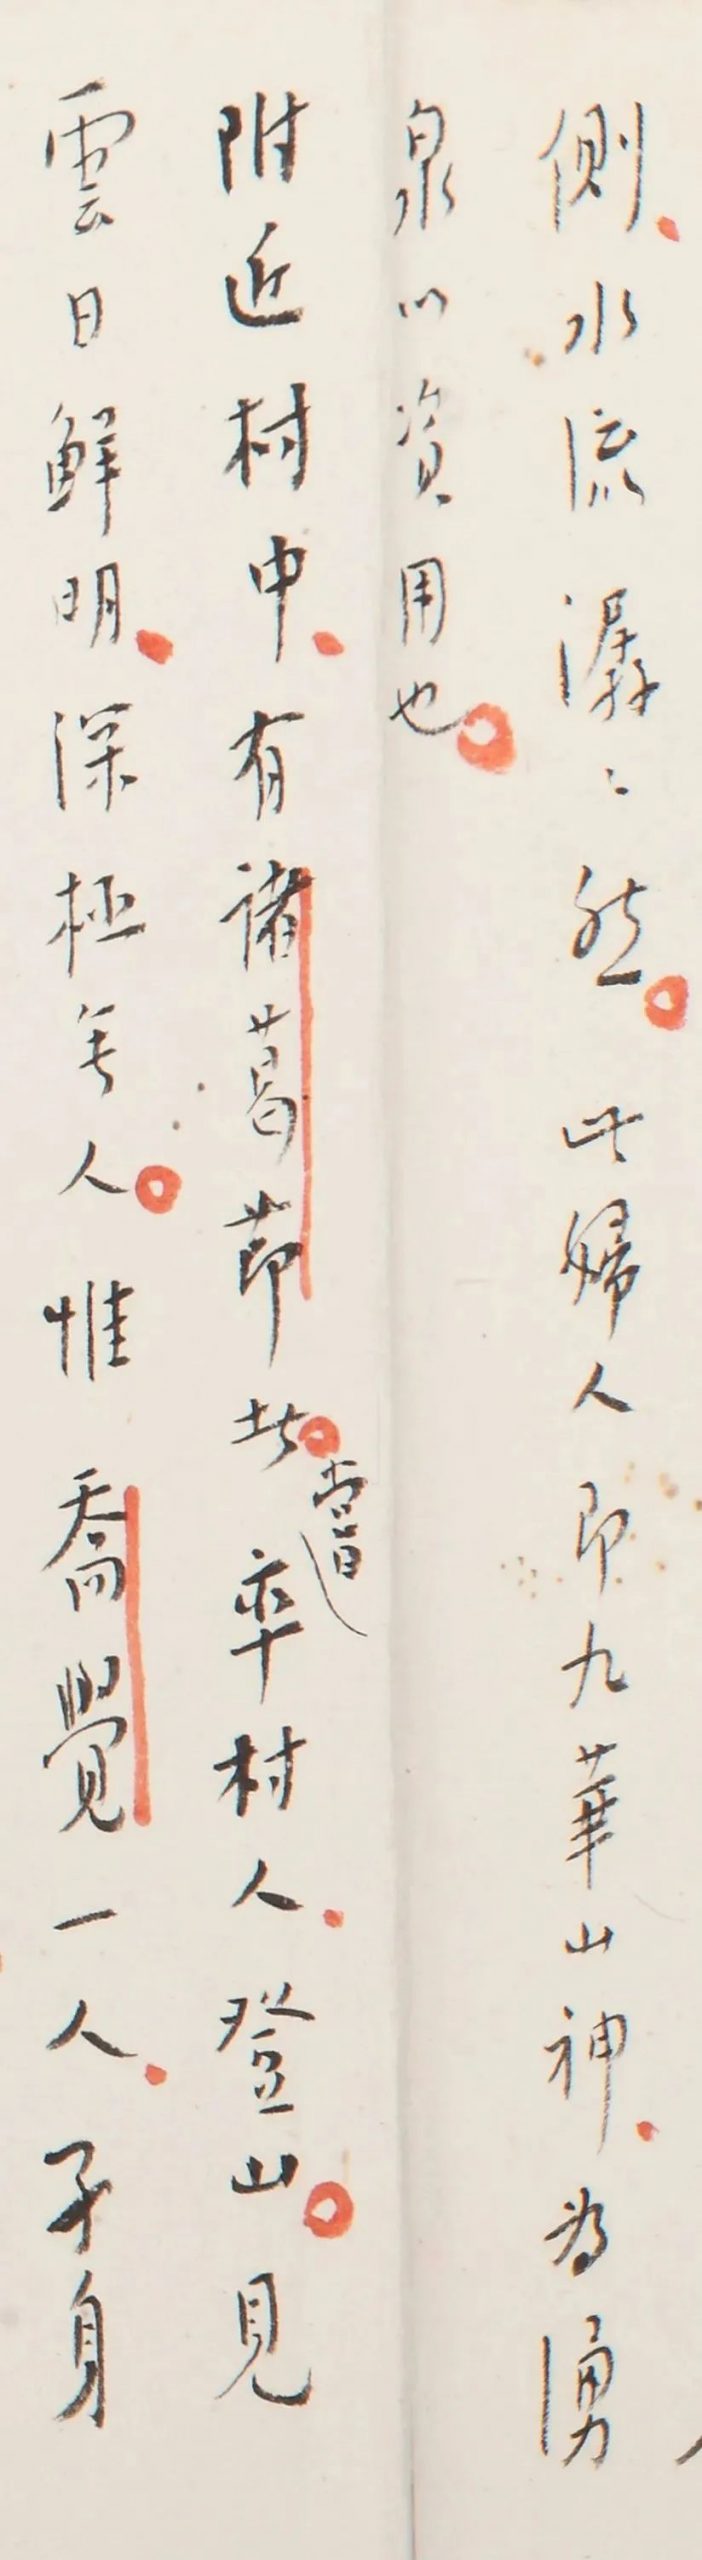 側、水流潺〻然。此婦人即九華山神、為湧
泉以資用也。
附近村中、有諸葛節者。嘗率村人、登山。見
雲日鮮明、深極無人。惟喬覺一人、孑身